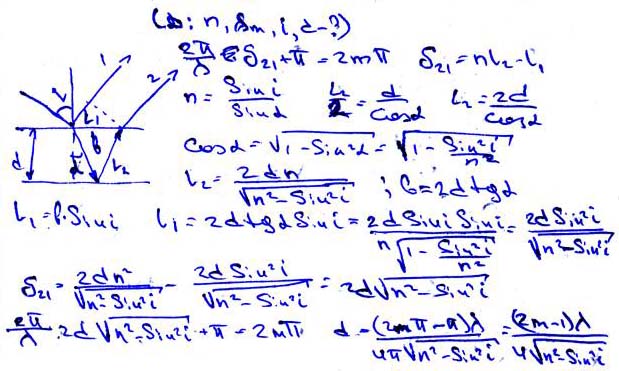 (λ; n, δm, i, d-?)
2π/λ δ₂₁+π = 2mπ δ₂₁ = nL₂-L₁
n = Sin i/Sin α L₂/2 = d/Cos α L₂ = 2d/Cos α
Cos α = √(1-Sin²α) = √(1-Sin²i/n²)
L₂ = 2dn/√(n²-Sin²i) ; b=2dtgα
L₁=b·Sin i L₁ = 2dtgα Sin i = 2d Sin i Sin i/(n√(1-Sin²i/n²)) = 2d Sin²i/√(n²-Sin²i)
δ₂₁ = 2dn²/√(n²-Sin²i) - 2d Sin²i/√(n²-Sin²i) = 2d√(n²-Sin²i)
2π/λ · 2d√(n²-Sin²i) + π = 2mπ d = (2mπ-π)λ/(4π√(n²-Sin²i)) = (2m-1)λ/(4√(n²-Sin²i))
1
2
i
L₁
b
d
α
L₂